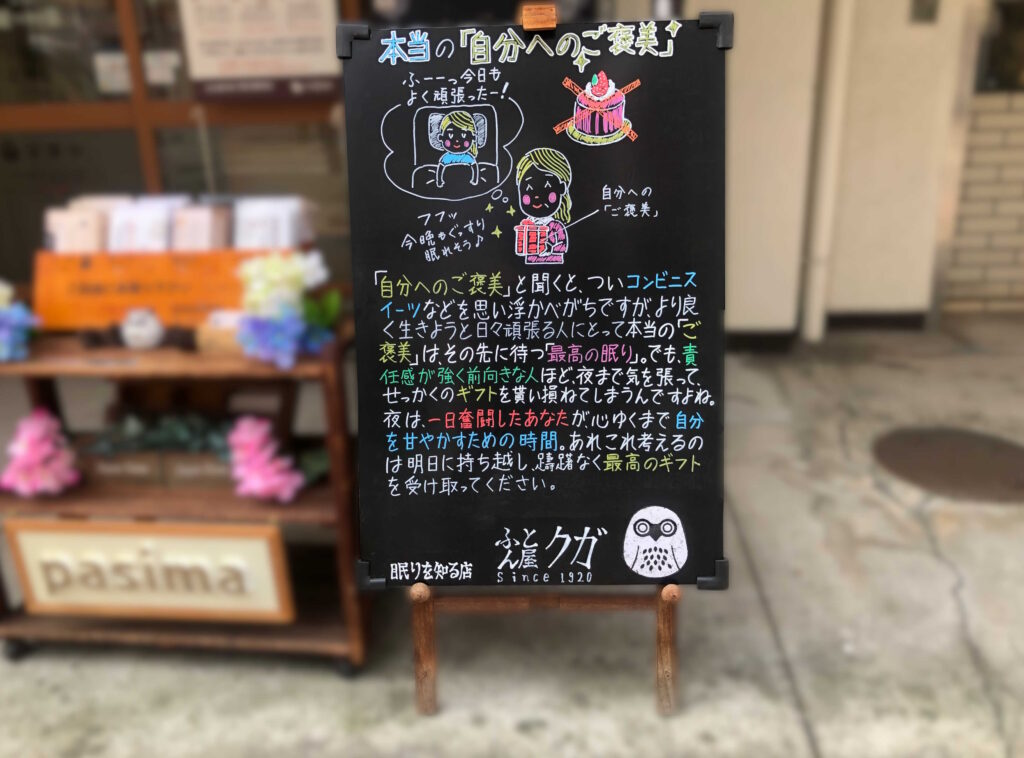 本当の「自分へのご褒美」
ふーーっ今日も
よく頑張ったー!
自分への
「ご褒美」
フフッ
今晩もぐっすり
眠れそう♪
「自分へのご褒美」と聞くと、ついコンビニス
イーツなどを思い浮かべがちですが、より良
く生きようと日々頑張る人にとって本当の「ご
褒美」はその先に待つ「最高の眠り」。でも、責
任感が強く前向きな人ほど、夜まで気を張って、
せっかくのギフトを貰い損ねてしまうんですよね。
夜は、一日奮闘したあなたが心ゆくまで自分
を甘やかすための時間。あれこれ考えるの
は明日に持ち越し、躊躇なく最高のギフト
を受け取ってください。
眠りを知る店
ふとん屋 クガ
Since 1920
pasima